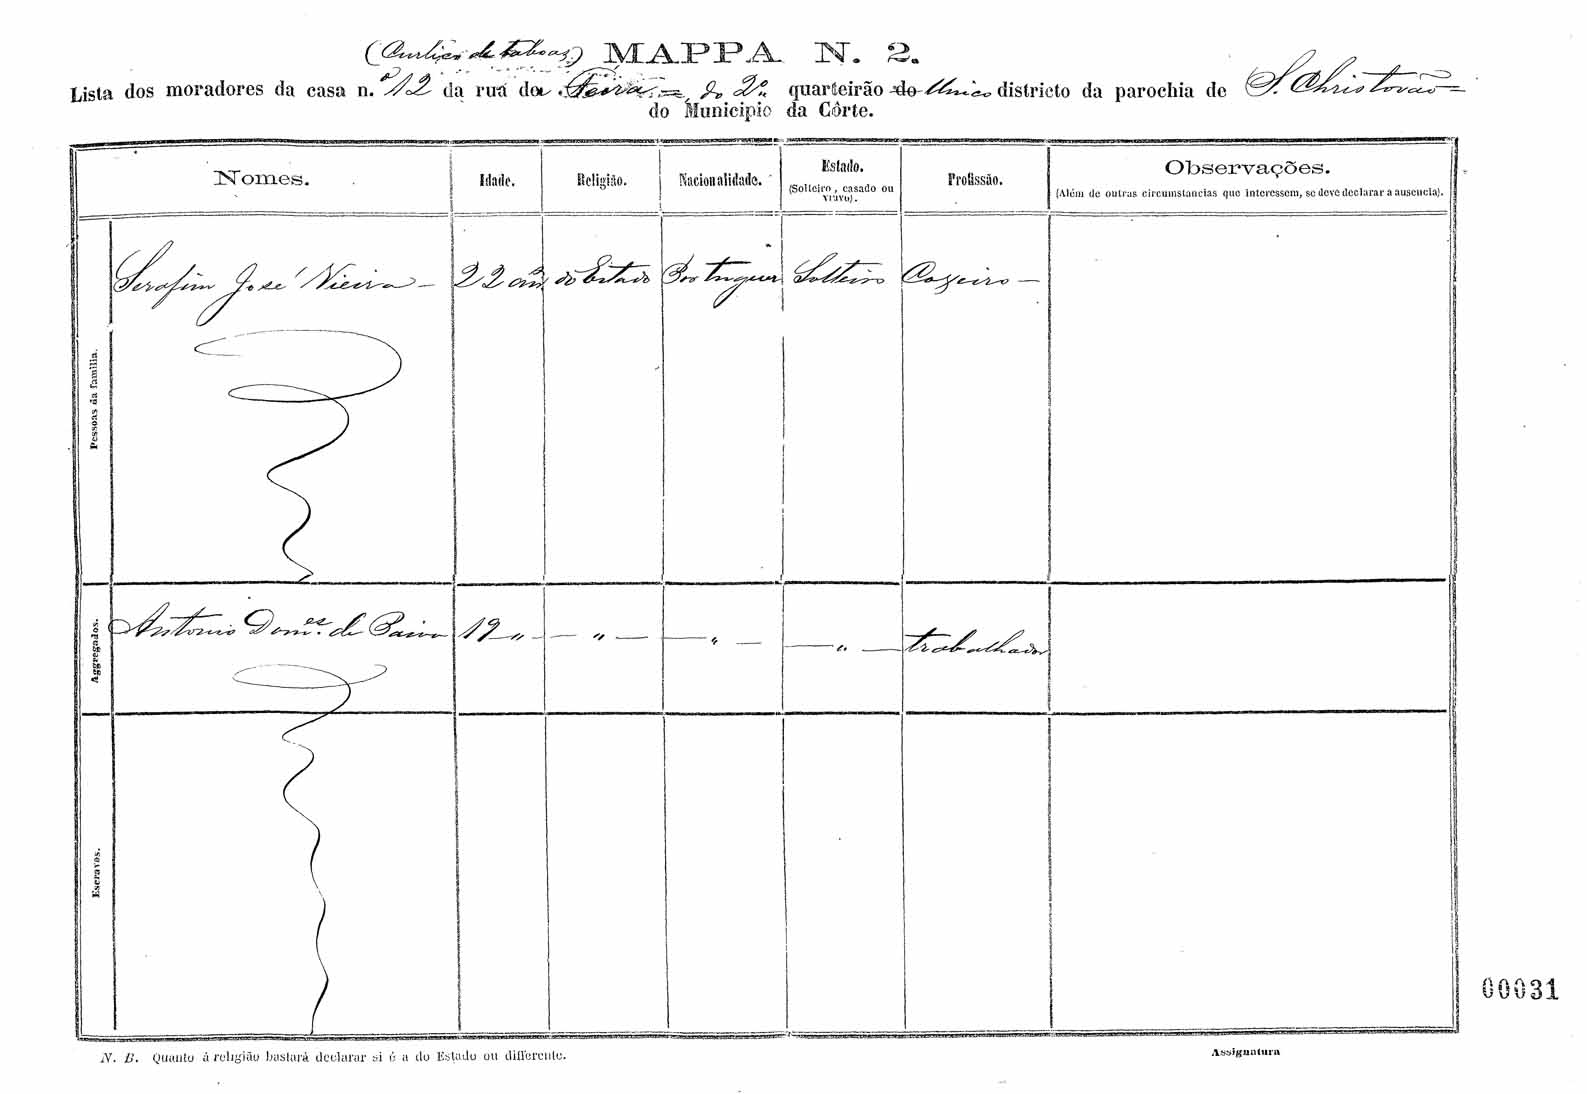 (Curtiço de taboas) MAPPA N. 2.
Lista dos moradores da casa n.º 12 da rua da Feira = do 2º quarteirão do Unico districto da parochia de S. Christovão =
do Municipio da Côrte.
Nomes. Idade. Religião. Nacionalidade. Estado. (Solteiro, casado ou viuvo). Profissão. Observações. (Além de outras circumstancias que interessem, se deve declarar a ausencia).
Pessoas da familia.
Serafim José Vieira - 22 ans do Estado Portuguez Solteiro Caxeiro -
Aggregados.
Antonio Domes. de Paiva 19 " - - " - - " - - " - trabalhador
Escravos.
00031
N. B. Quanto á religião bastará declarar si é a do Estado ou differente.
Assignatura